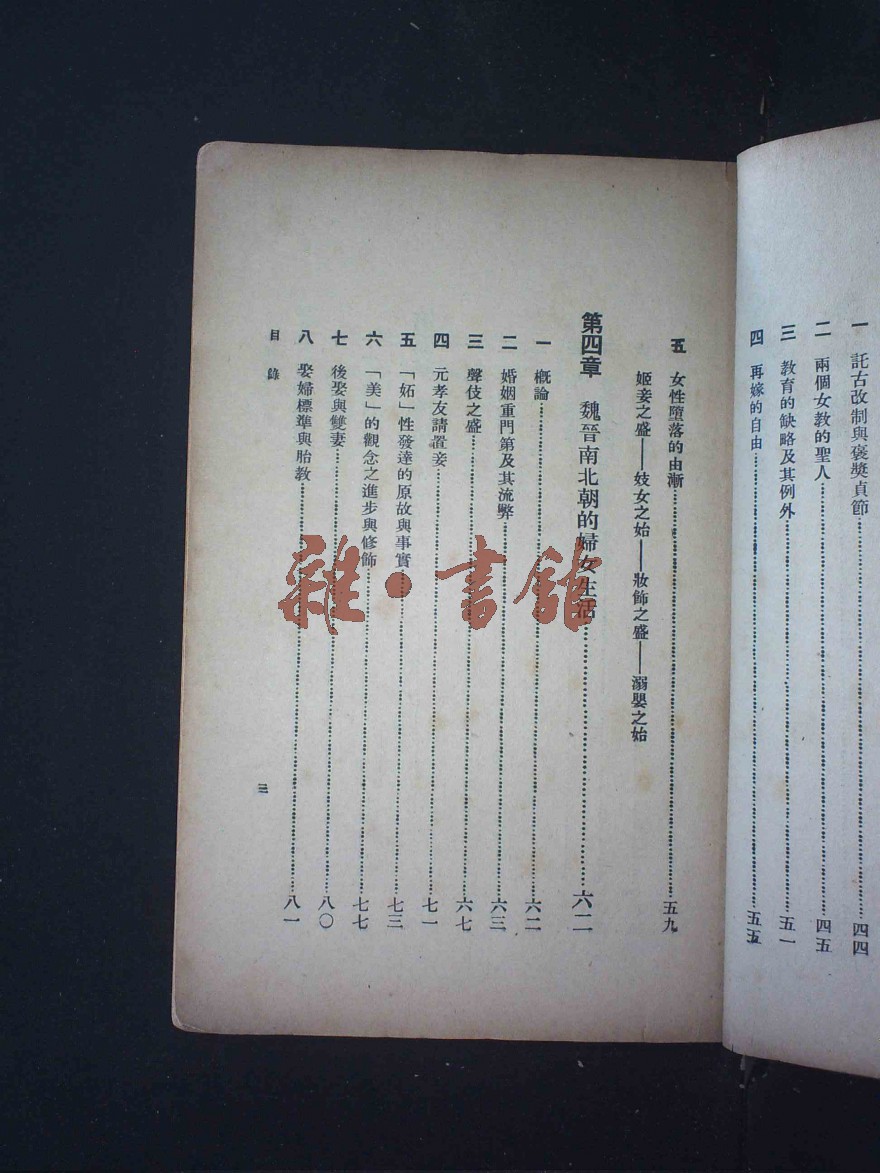 一 託古改制與褒奬貞節……四四
二 兩個女教的聖人……四五
三 教育的缺略及其例外……五一
四 再嫁的自由……五五
五 女性墮落的由漸……五九
姬妾之盛——妓女之始——妝飾之盛——溺嬰之始
第四章 魏晉南北朝的婦女生活……六二
一 概論……六二
二 婚姻重門第及其流弊……六三
三 聲伎之盛……六七
四 元孝友請置妾……七一
五 「妬」性發達的原故與事實……七三
六 「美」的觀念之進步與修飾……七七
七 後娶與雙妻……八〇
八 娶婦標準與胎教……八一
目錄
三
雜·書館